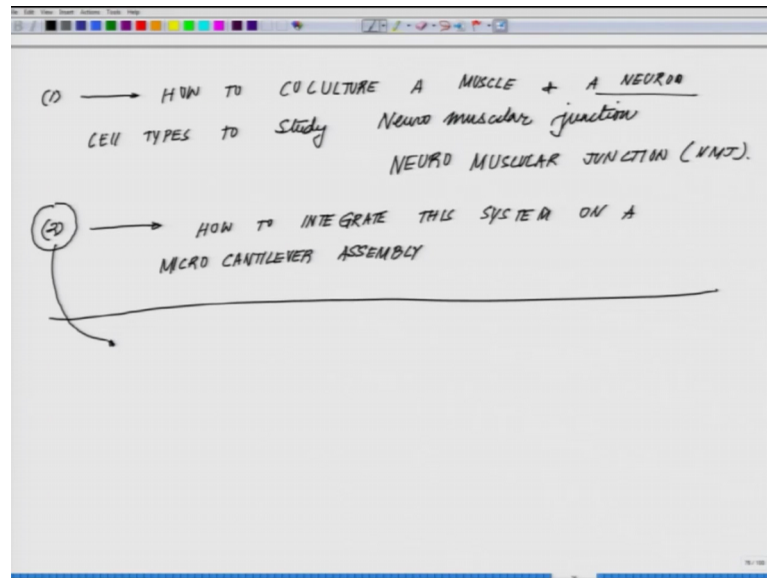 File Edit View Insert Actions Tools Help
(1) → HOW TO COCULTURE A MUSCLE + A NEURON
CELL TYPES TO Study Neuro muscular junction
NEURO MUSCULAR JUNCTION (NMJ).
(2) → HOW TO INTEGRATE THIS SYSTEM ON A
MICRO CANTILEVER ASSEMBLY